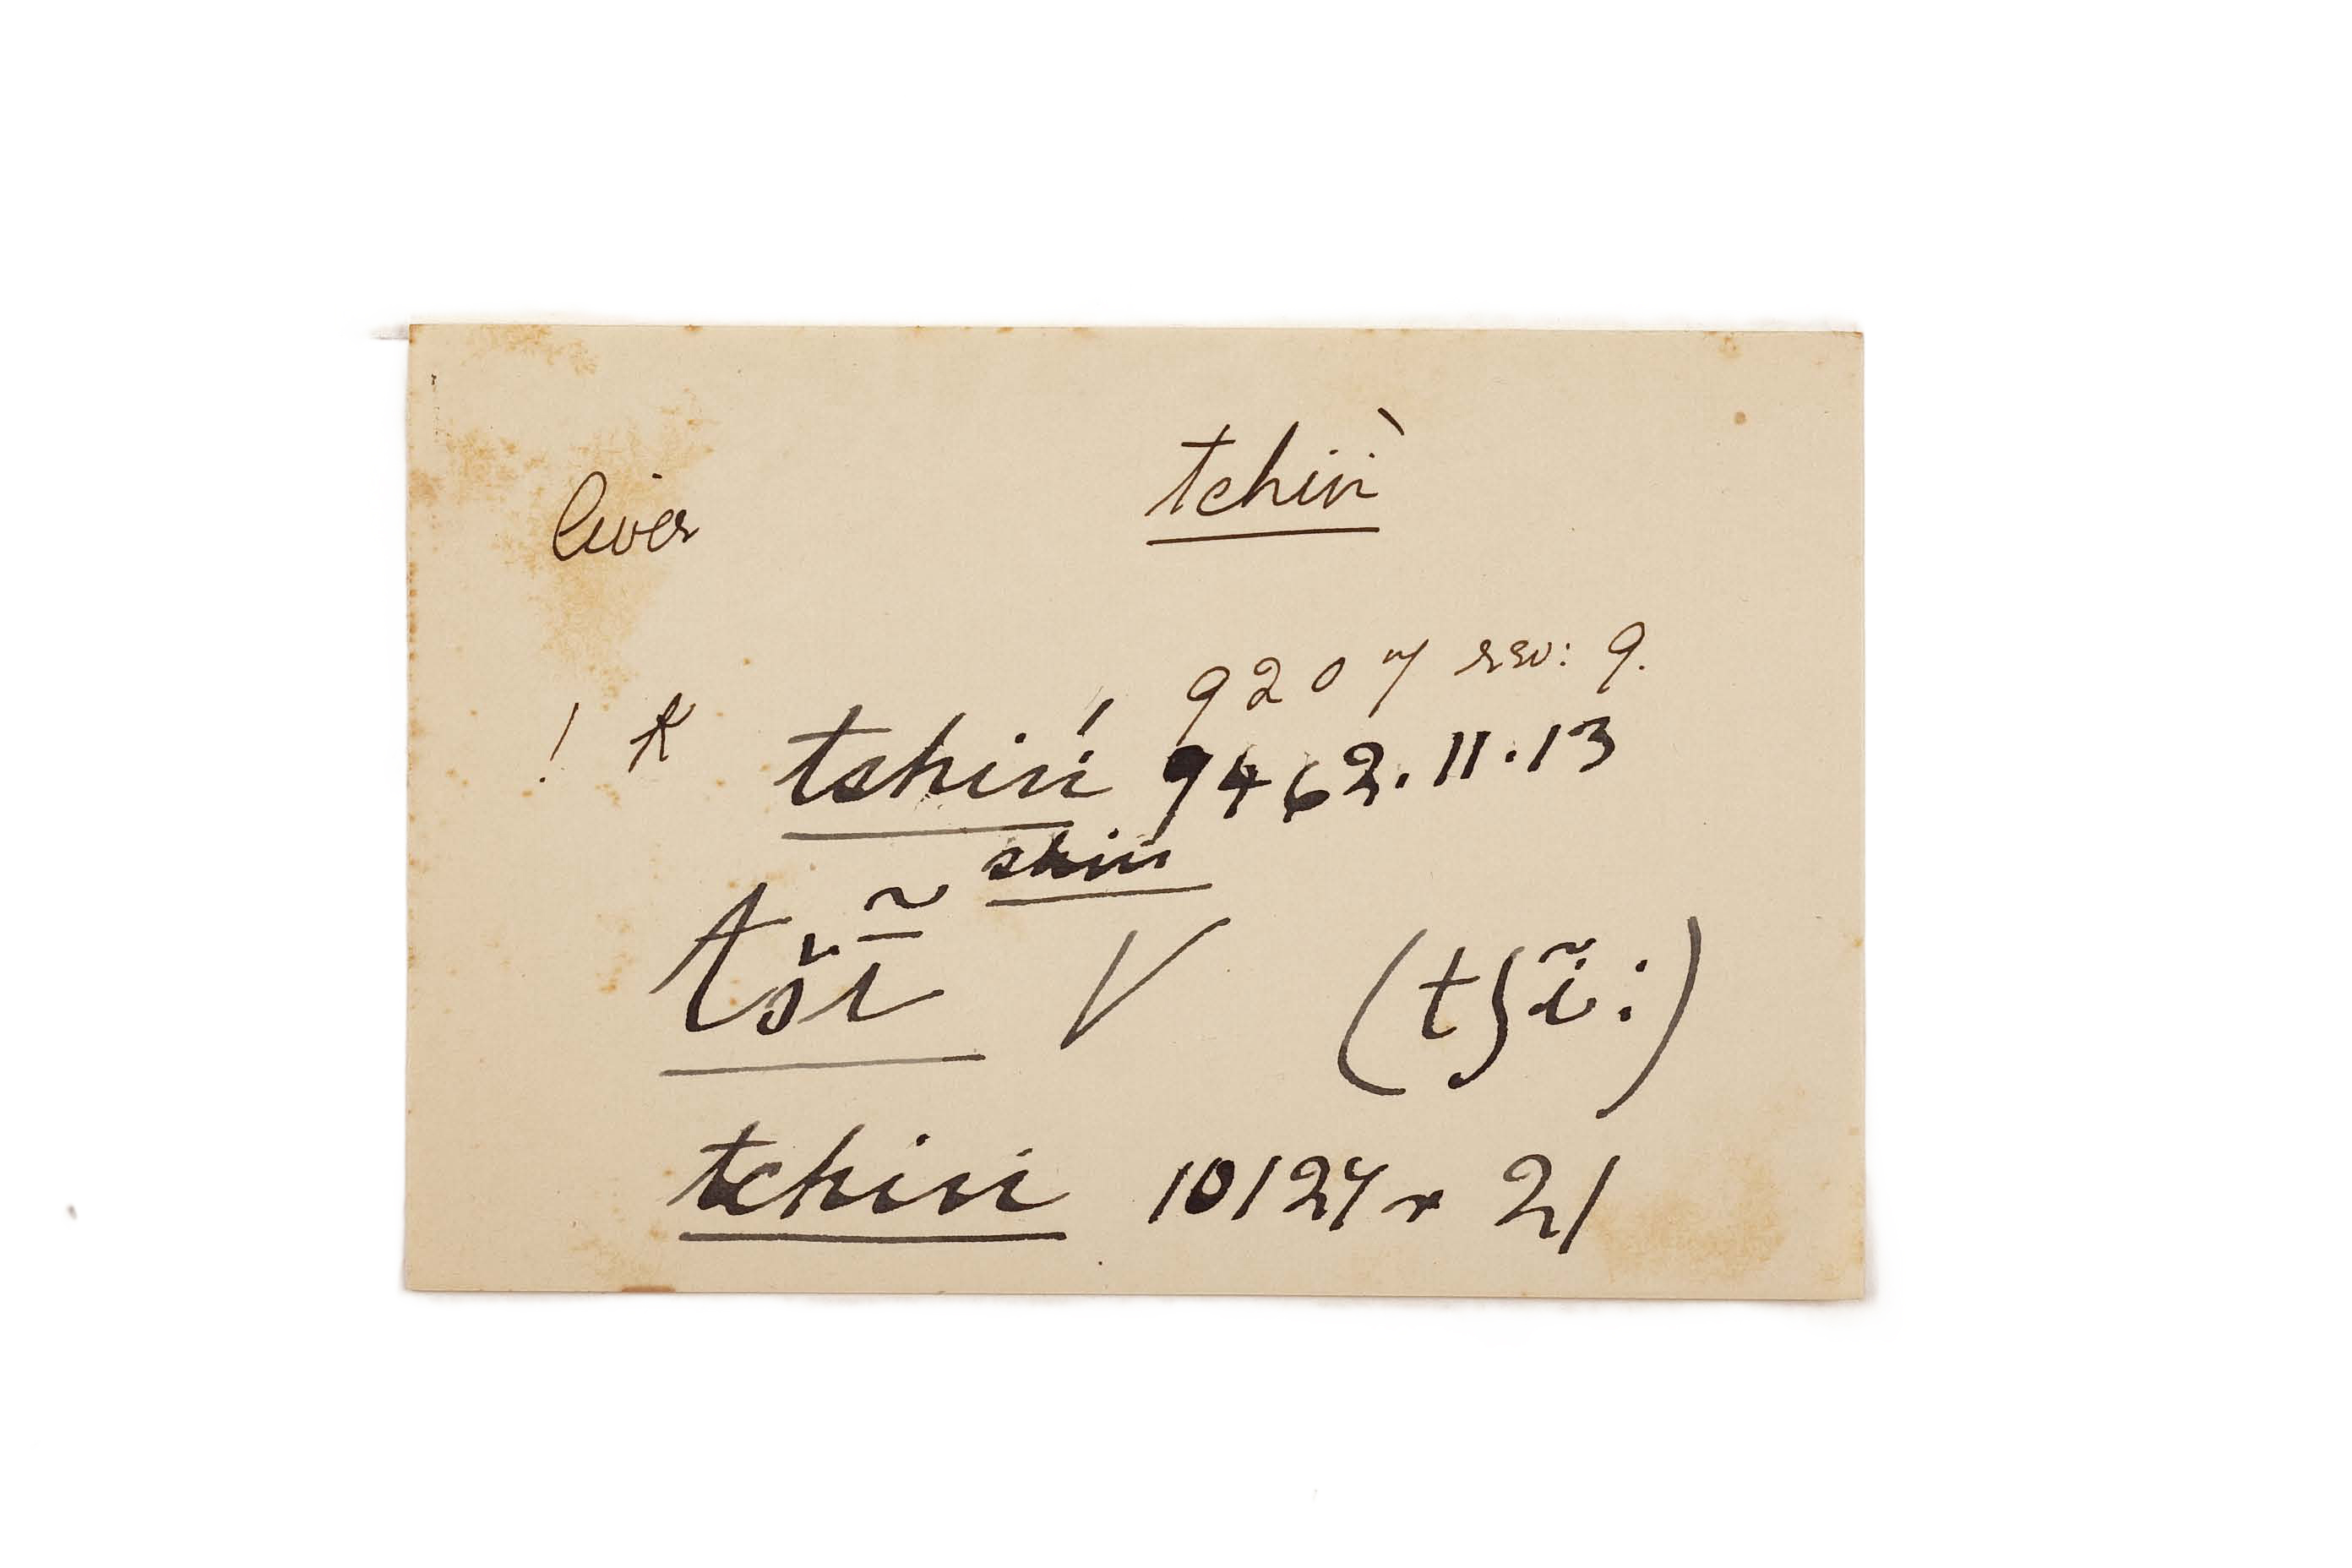 liver tchiṅ̀
9207 rev: 9.
! k tshiṅ́ 9462.11.13
shiṅ
tšī̃ V (tʃĩ:)
tchiṅ 10127 r 21